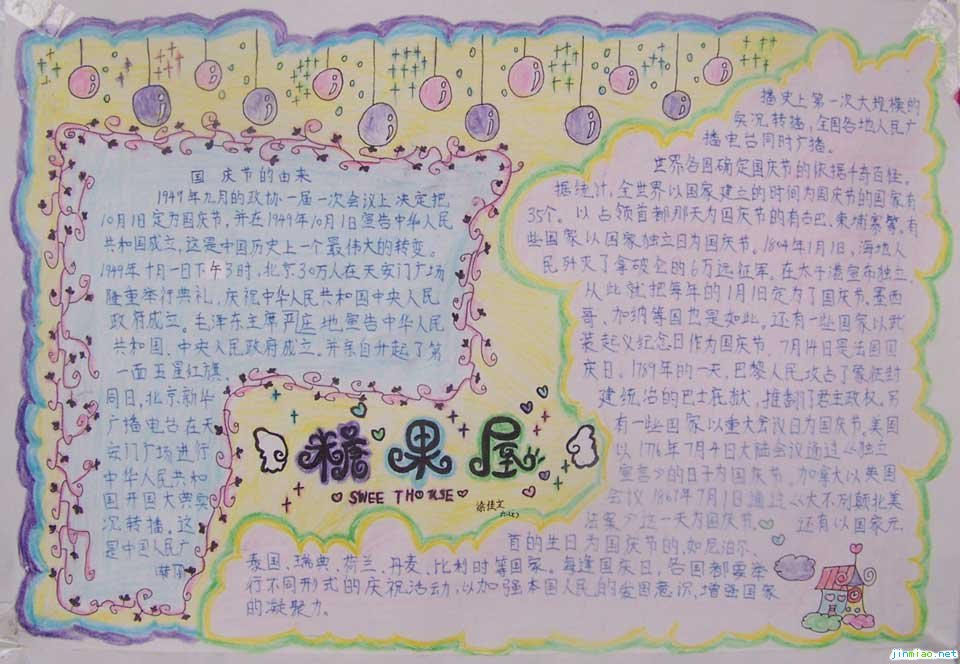 国庆节的由来
1949年九月的政协一届一次会议上决定把
10月1日定为国庆节,并在1949年10月1日宣告中华人民
共和国成立,这是中国历史上一个最伟大的转变。
1949年十月一日下午3时,北京30万人在天安门广场
隆重举行典礼,庆祝中华人民共和国中央人民
政府成立。毛泽东主席严庄地宣告中华人民
共和国、中央人民政府成立。并亲自升起了第
一面五星红旗。
同日,北京新华
广播电台在天
安门广场进行
中华人民共和
国开国大典实
况转播。这
是中国人民广
播史上第一次大规模的
实况转播,全国各地人民广
播电台同时广播。
世界各国确定国庆节的依据千奇百怪。
据统计,全世界以国家建立的时间为国庆节的国家有
35个。以占领首都那天为国庆节的有古巴、柬埔寨等。有
些国家以国家独立日为国庆节。1804年1月1日,海地人
民歼灭了拿破仑的6万远征军。在太子港宣布独立,
从此就把每年的1月1日定为了国庆节。墨西
哥、加纳等国也是如此。还有一些国家以武
装起义纪念日作为国庆节。7月14日是法国国
庆日。1789年的一天,巴黎人民攻占了象征封
建统治的巴士底狱,推翻了君主政权。另
有一些国家以重大会议日为国庆节。美国
以1776年7月4日大陆会议通过《独立
宣言》的日子为国庆节。加拿大以英国
会议1867年7月1日通过《大不列颠北美
法案》这一天为国庆节。还有以国家元
首的生日为国庆节的,如尼泊尔、
泰国、瑞典、荷兰、丹麦、比利时等国家。每逢国庆日,各国都要举
行不同形式的庆祝活动,以加强本国人民的爱国意识,增强国家
的凝聚力。
糖果屋
SWEE THOUSE
jinmiao.net